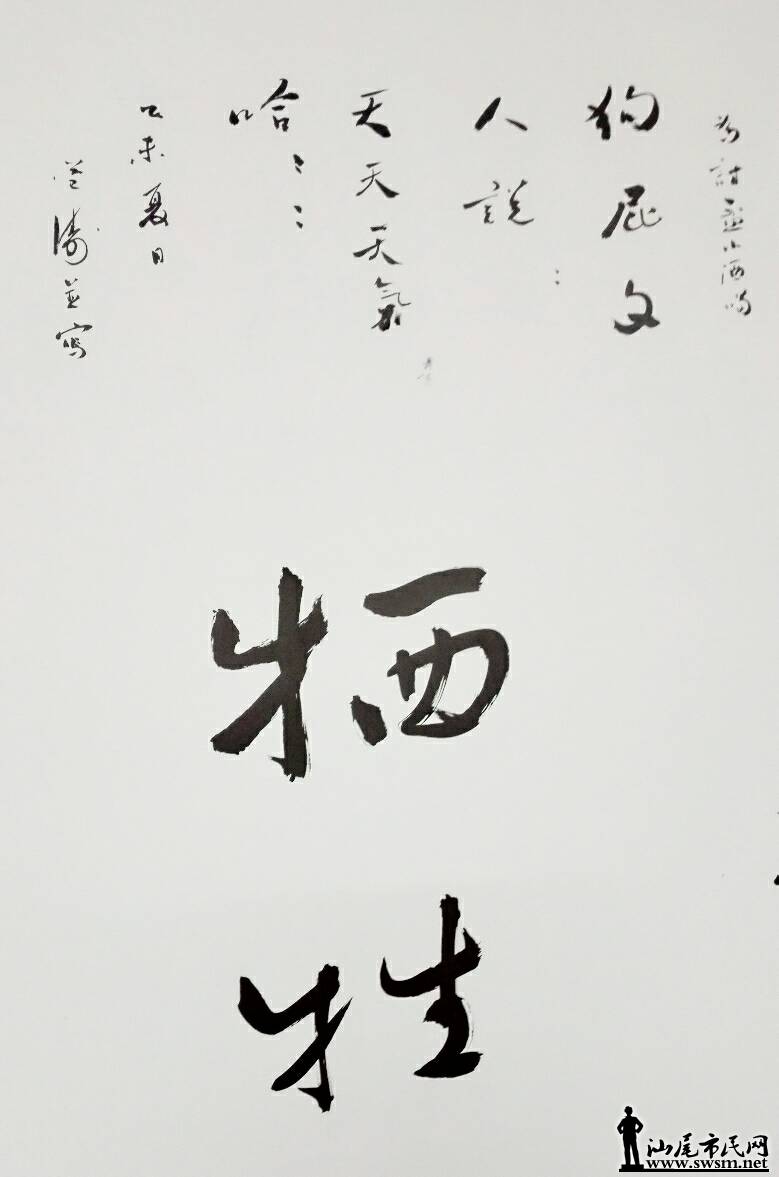 為討盃小酒喝
狗屁文
人説：
天天天氣
哈：：
乙未夏日
並寫
牺
牲
汕尾市民网
www.swsm.net